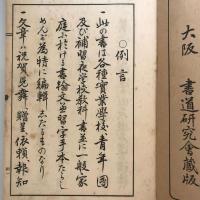 〇例言
一此の書は各種實業學校青年團
及び補習夜學校教科書並に一般家
庭に於ける書翰文の習字手本たらし
めんが為特に編輯したるものなり
一文章は祝賀見舞贈呈依頼報知
大阪 書道研究會藏版